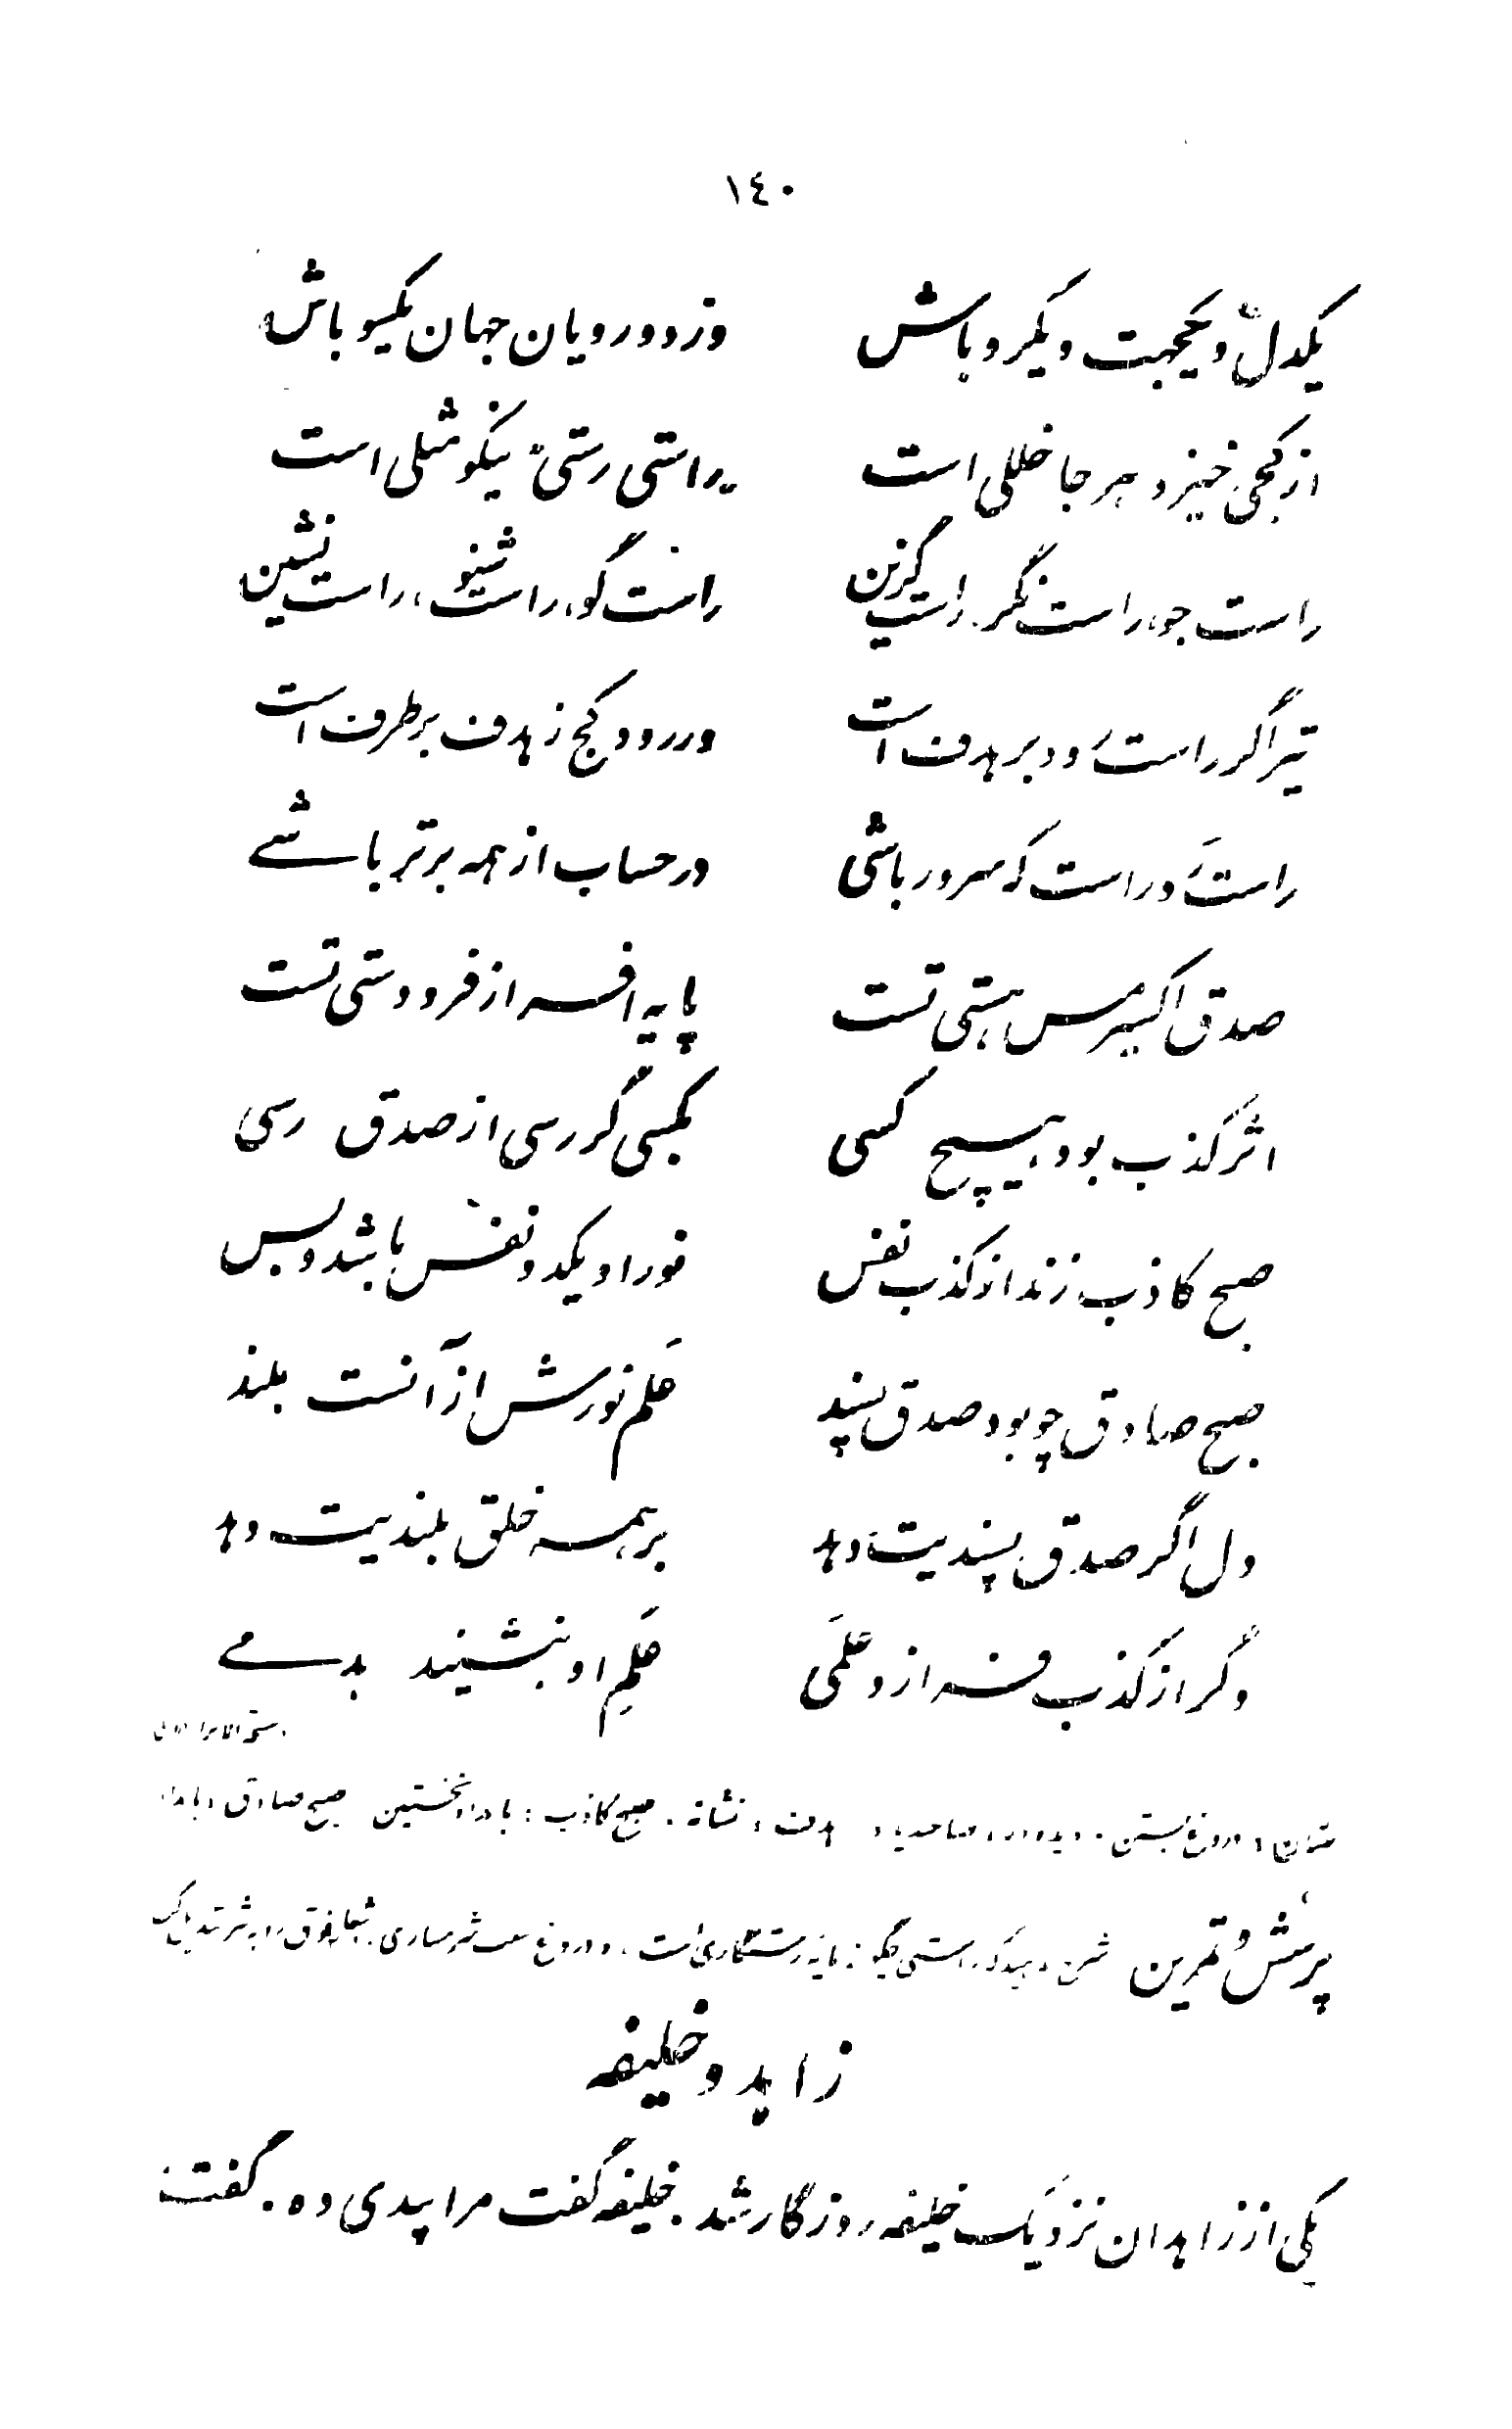 ١٤٠
یکدل و یکجهت و یکرو باش وز دورویان جهان یکسو باش
از کجی خیزد هرجا خللی است راستی رستی نیکو مثلی است
راست جو، راست نگر، راست گزین راست گو، راست شنو، راست نشین
تیر اگر راست رود بر هدف است ور رود کج ز هدف بر طرف است
راست رو راست که سرور باشی در حساب از همه برتر باشی
صدق اکسیر مس هستی تست پایه افسر از فرودستی تست
اثر کذب بود هیچ کسی بکسی گر رسی از صدق رسی
صبح کاذب زند از کذب نفس نور او یکدو نفس باشد و بس
صبح صادق چو بود صدق پسند علم نورش از آنست بلند
دل اگر صدق پسندیت دهد بر همه خلق بلندیت دهد
وگر از کذب فرازد علمی علم او بنشیند بدمی
دروغ بستن . هدف : نشانه . صبح کاذب : بامداد نخستین صبح صادق : بامداد
پرسش و تمرین شرح دهید که راستی چگونه مایه رستگاری است و دروغ سبب شرمساری
زاهد و خلیفه
یکی از زاهدان نزدیک خلیفه روزگار شد. خلیفه گفت مرا پندی ده. گفت: